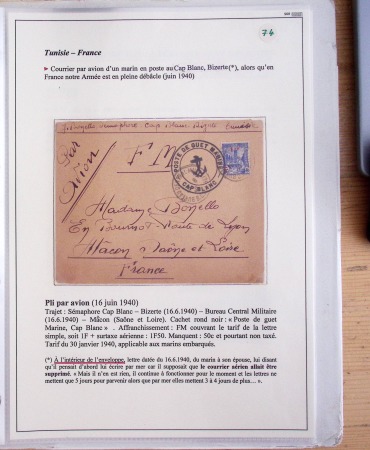 74
Tunisie – France
► Courrier par avion d'un marin en poste au Cap Blanc, Bizerte(*), alors qu'en
France notre Armée est en pleine débâcle (juin 1940)
Cap Blanc
Par
Avion
F M
POSTE DE GUET MARINE
CAP BLANC
Madame
En Route de Lyon
Mâcon Saône et Loire
France
Pli par avion (16 juin 1940)
Trajet : Sémaphore Cap Blanc – Bizerte (16.6.1940) – Bureau Central Militaire
(16.6.1940) – Mâcon (Saône et Loire). Cachet rond noir : « Poste de guet
Marine, Cap Blanc » . Affranchissement : FM couvant le tarif de la lettre
simple, soit 1F + surtaxe aérienne : 1F50. Manquent : 50c et pourtant non taxé.
Tarif du 30 janvier 1940, applicable aux marins embarqués.
(*) À l'intérieur de l'enveloppe, lettre datée du 16.6.1940, du marin à son épouse, lui disant
qu'il pensait d'abord lui écrire par mer car il supposait que le courrier aérien allait être
supprimé. « Mais il n'en est rien, il continue à fonctionner pour le moment et les lettres ne
mettent que 5 jours pour parvenir alors que par mer elles mettent 3 à 4 jours de plus... ».